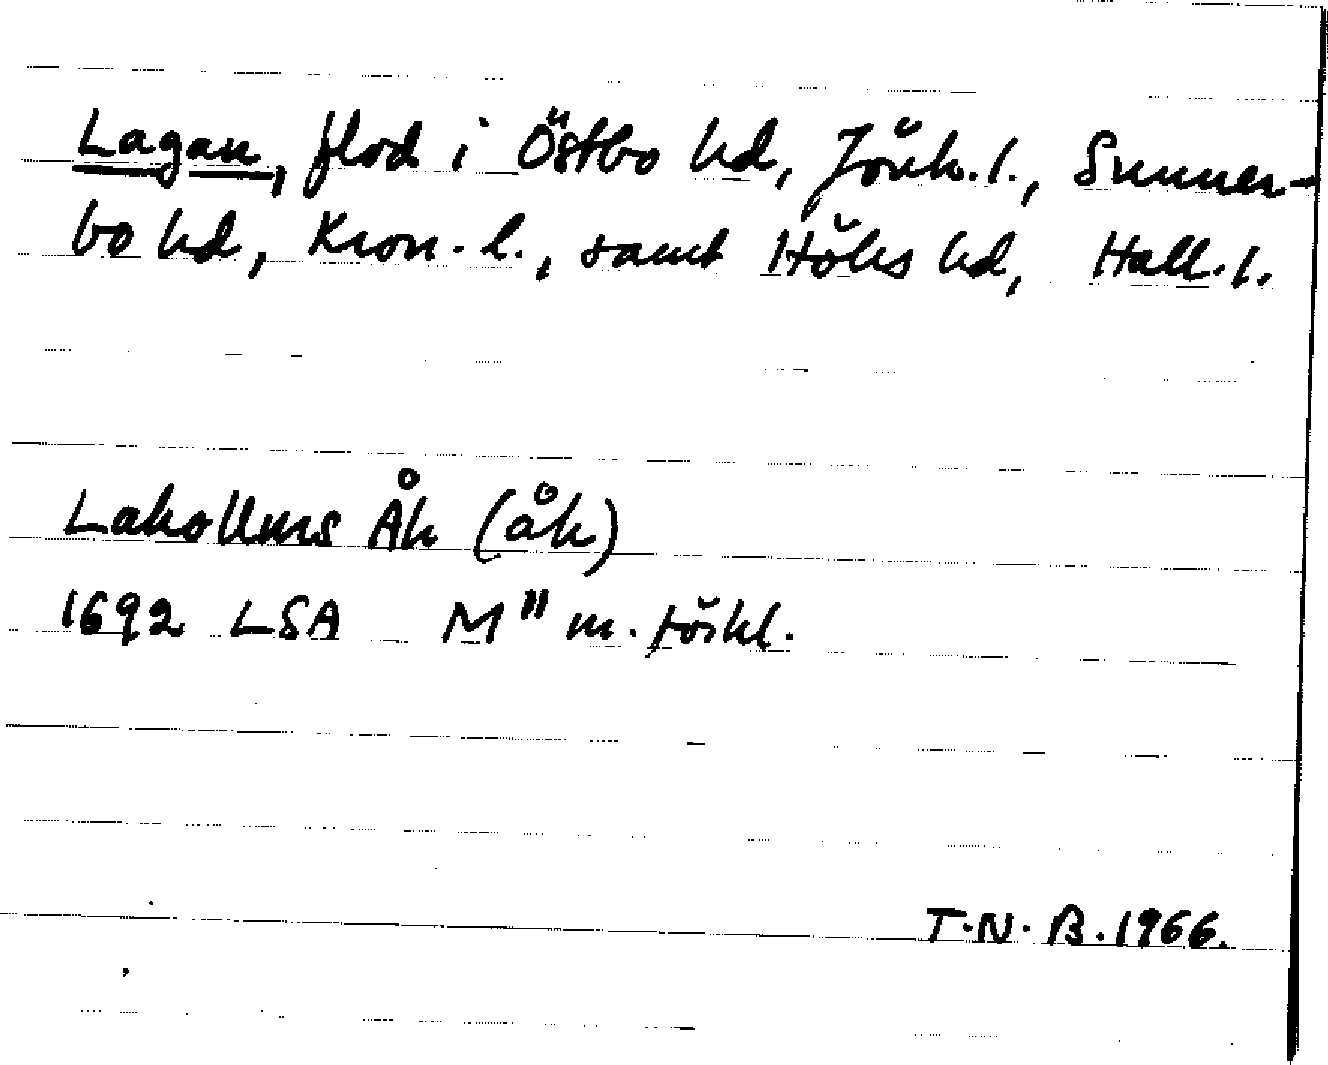 Lagan, flod i Östbo hd, Jönk. l., Sunner-
bo hd, Kron. l., samt Höks hd, Hall. l.
Lahollms Åh (åh)
1692 LSA M" m. förkl.
T.N.B. 1966.